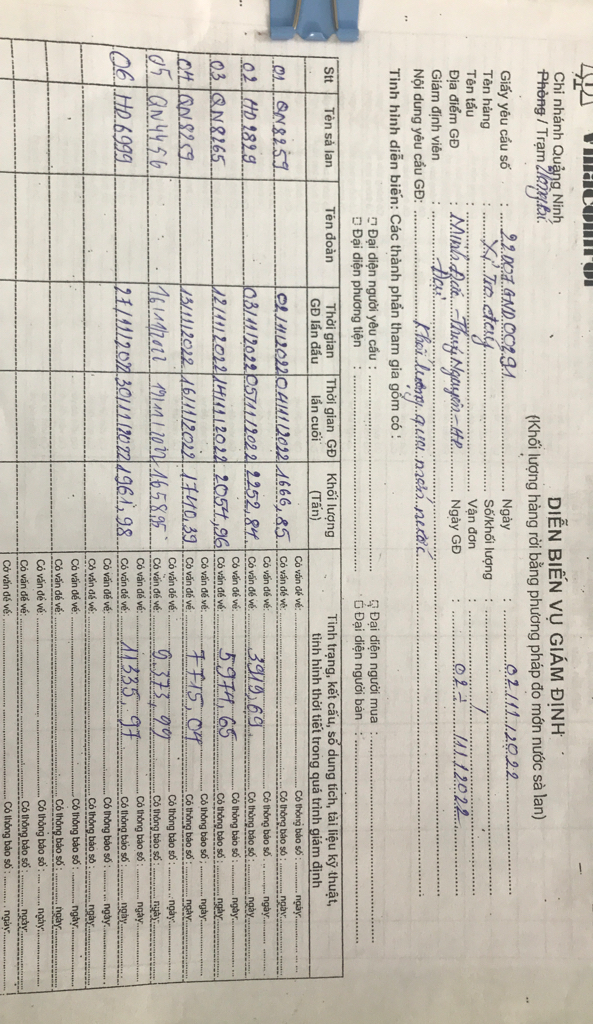 Vinacontrol
Chi nhánh Quảng Ninh
Phòng / Trạm
DIỄN BIẾN VỤ GIÁM ĐỊNH
(Khối lượng hàng rời bằng phương pháp đo mớn nước sà lan)
Giấy yêu cầu số : 22D07GND00291 Ngày : 02/11/2022
Tên hàng : Xỉ Số/khối lượng :
Tên tầu : Vận đơn : /
Địa điểm GĐ : Minh Đức - Thuỷ Nguyên - HP Ngày GĐ : 02 - /11/2022
Giám định viên : Đại
Nội dung yêu cầu GĐ: Khối lượng qua mớn nước
Tình hình diễn biến: Các thành phần tham gia gồm có :
□ Đại diện người yêu cầu : □ Đại diện người mua :
□ Đại diện phương tiện : □ Đại diện người bán :
Stt Tên sà lan Tên đoàn Thời gian GĐ lần đầu Thời gian GĐ lần cuối Khối lượng (Tấn) Tình trạng, kết cấu, số dung tích, tài liệu kỹ thuật, tình hình thời tiết trong quá trình giám định
Có vấn đề về: Có thông báo số : ngày:
01 QN8259 02/11/2022 04/11/2022 1666,85 Có vấn đề về: Có thông báo số : ngày:
Có vấn đề về: Có thông báo số : ngày:
02 HD2829 03/11/2022 05/11/2022 2252,84 Có vấn đề về: 3919,69 Có thông báo số : ngày:
Có vấn đề về: Có thông báo số : ngày:
03 QN8265 12/11/2022 14/11/2022 2054,96 Có vấn đề về: 5974,65 Có thông báo số : ngày:
Có vấn đề về: Có thông báo số : ngày:
04 QN8259 13/11/2022 16/11/2022 1740,39 Có vấn đề về: 7715,04 Có thông báo số : ngày:
Có vấn đề về: Có thông báo số : ngày:
05 QN4456 16/11/2022 19/11/2022 1658,95 Có vấn đề về: 9373,99 Có thông báo số : ngày:
Có vấn đề về: Có thông báo số : ngày:
06 HD6999 27/11/2022 30/11/2022 1961,98 Có vấn đề về: 11335,97 Có thông báo số : ngày:
Có vấn đề về: Có thông báo số : ngày:
Có vấn đề về: Có thông báo số : ngày:
Có vấn đề về: Có thông báo số : ngày:
Có vấn đề về: Có thông báo số : ngày:
Có vấn đề về: Có thông báo số : ngày:
Có vấn đề về: Có thông báo số : ngày:
Có vấn đề về: Có thông báo số : ngày: